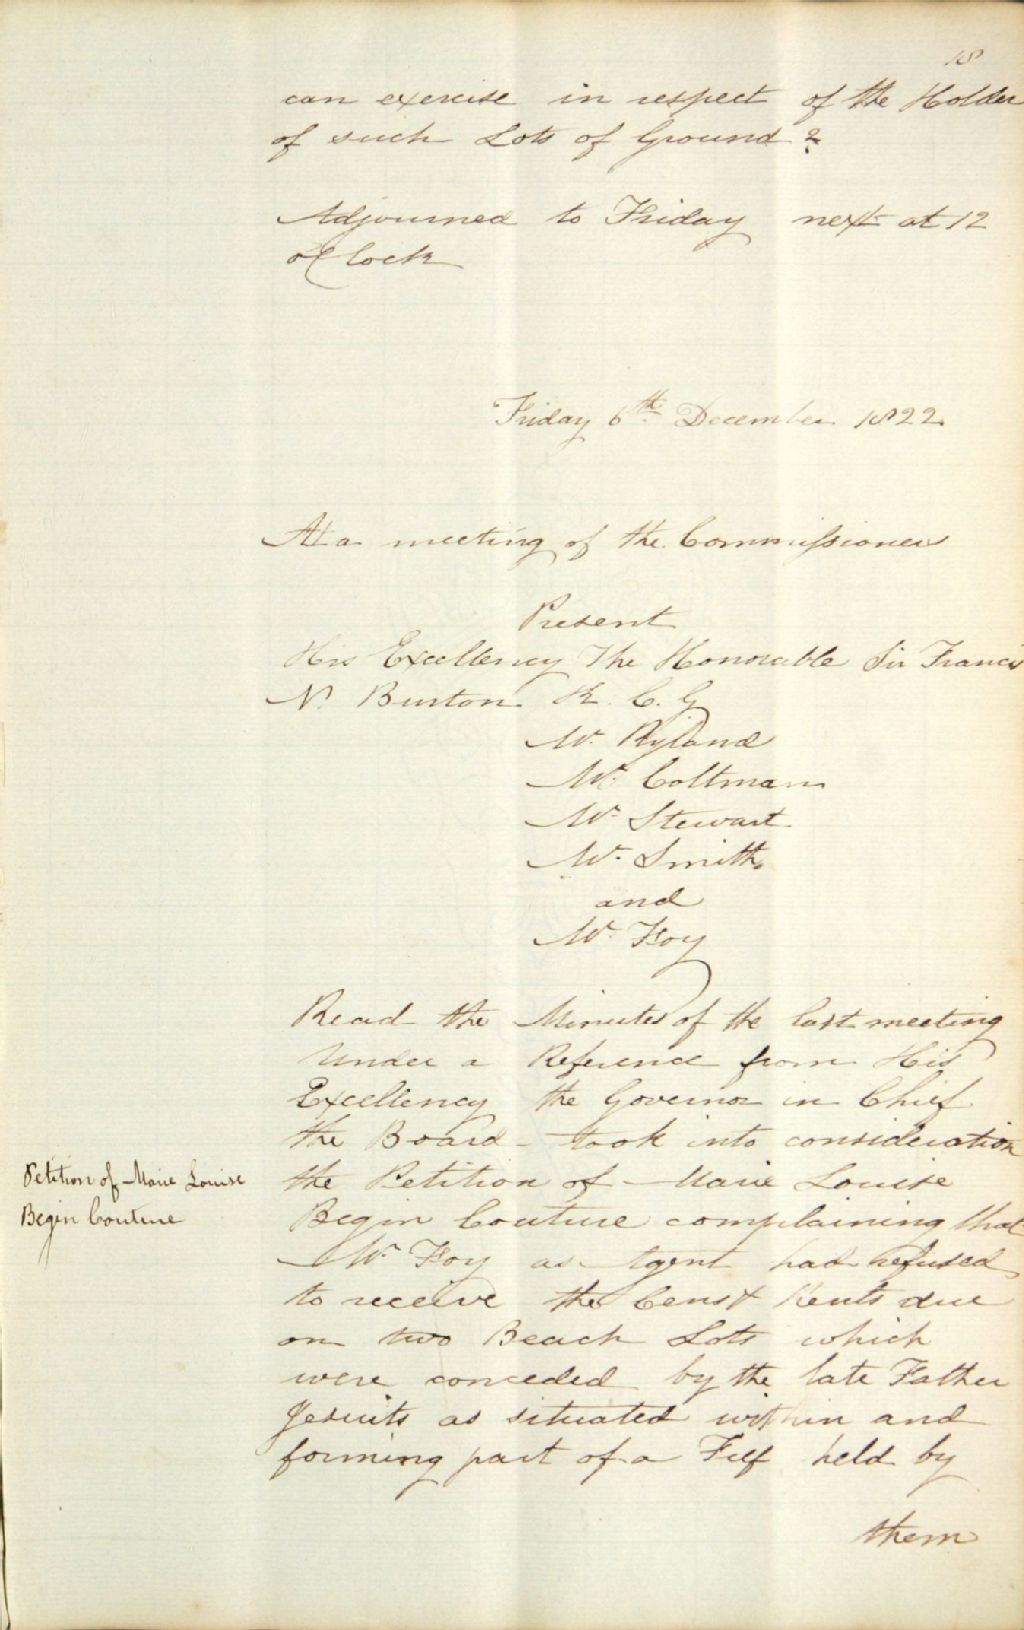 18
can exercise in respect of the Holder
of such Lots of Ground?
Adjourned to Friday next at 12
o'Clock
Friday 6th December 1822
At a meeting of the Commissioners
Present
His Excellency The Honorable Sir Francis
N. Burton K. C. G
Mr. Ryland
Mr. Coltman
Mr. Stewart
Mr. Smith
and
Mr. Foy
Read the Minutes of the last meeting
Under a Reference from His
Excellency the Governor in Chief
the Board took into consideration
Petition of Marie Louise
Begin Couture
the Petition of Marie Louise
Begin Couture complaining that
Mr. Foy as Agent had refused
to receive the Cens & Rents due
on two Beach Lots which
were conceded by the late Father
Jesuits as situated within and
forming part of a Fief held by
them